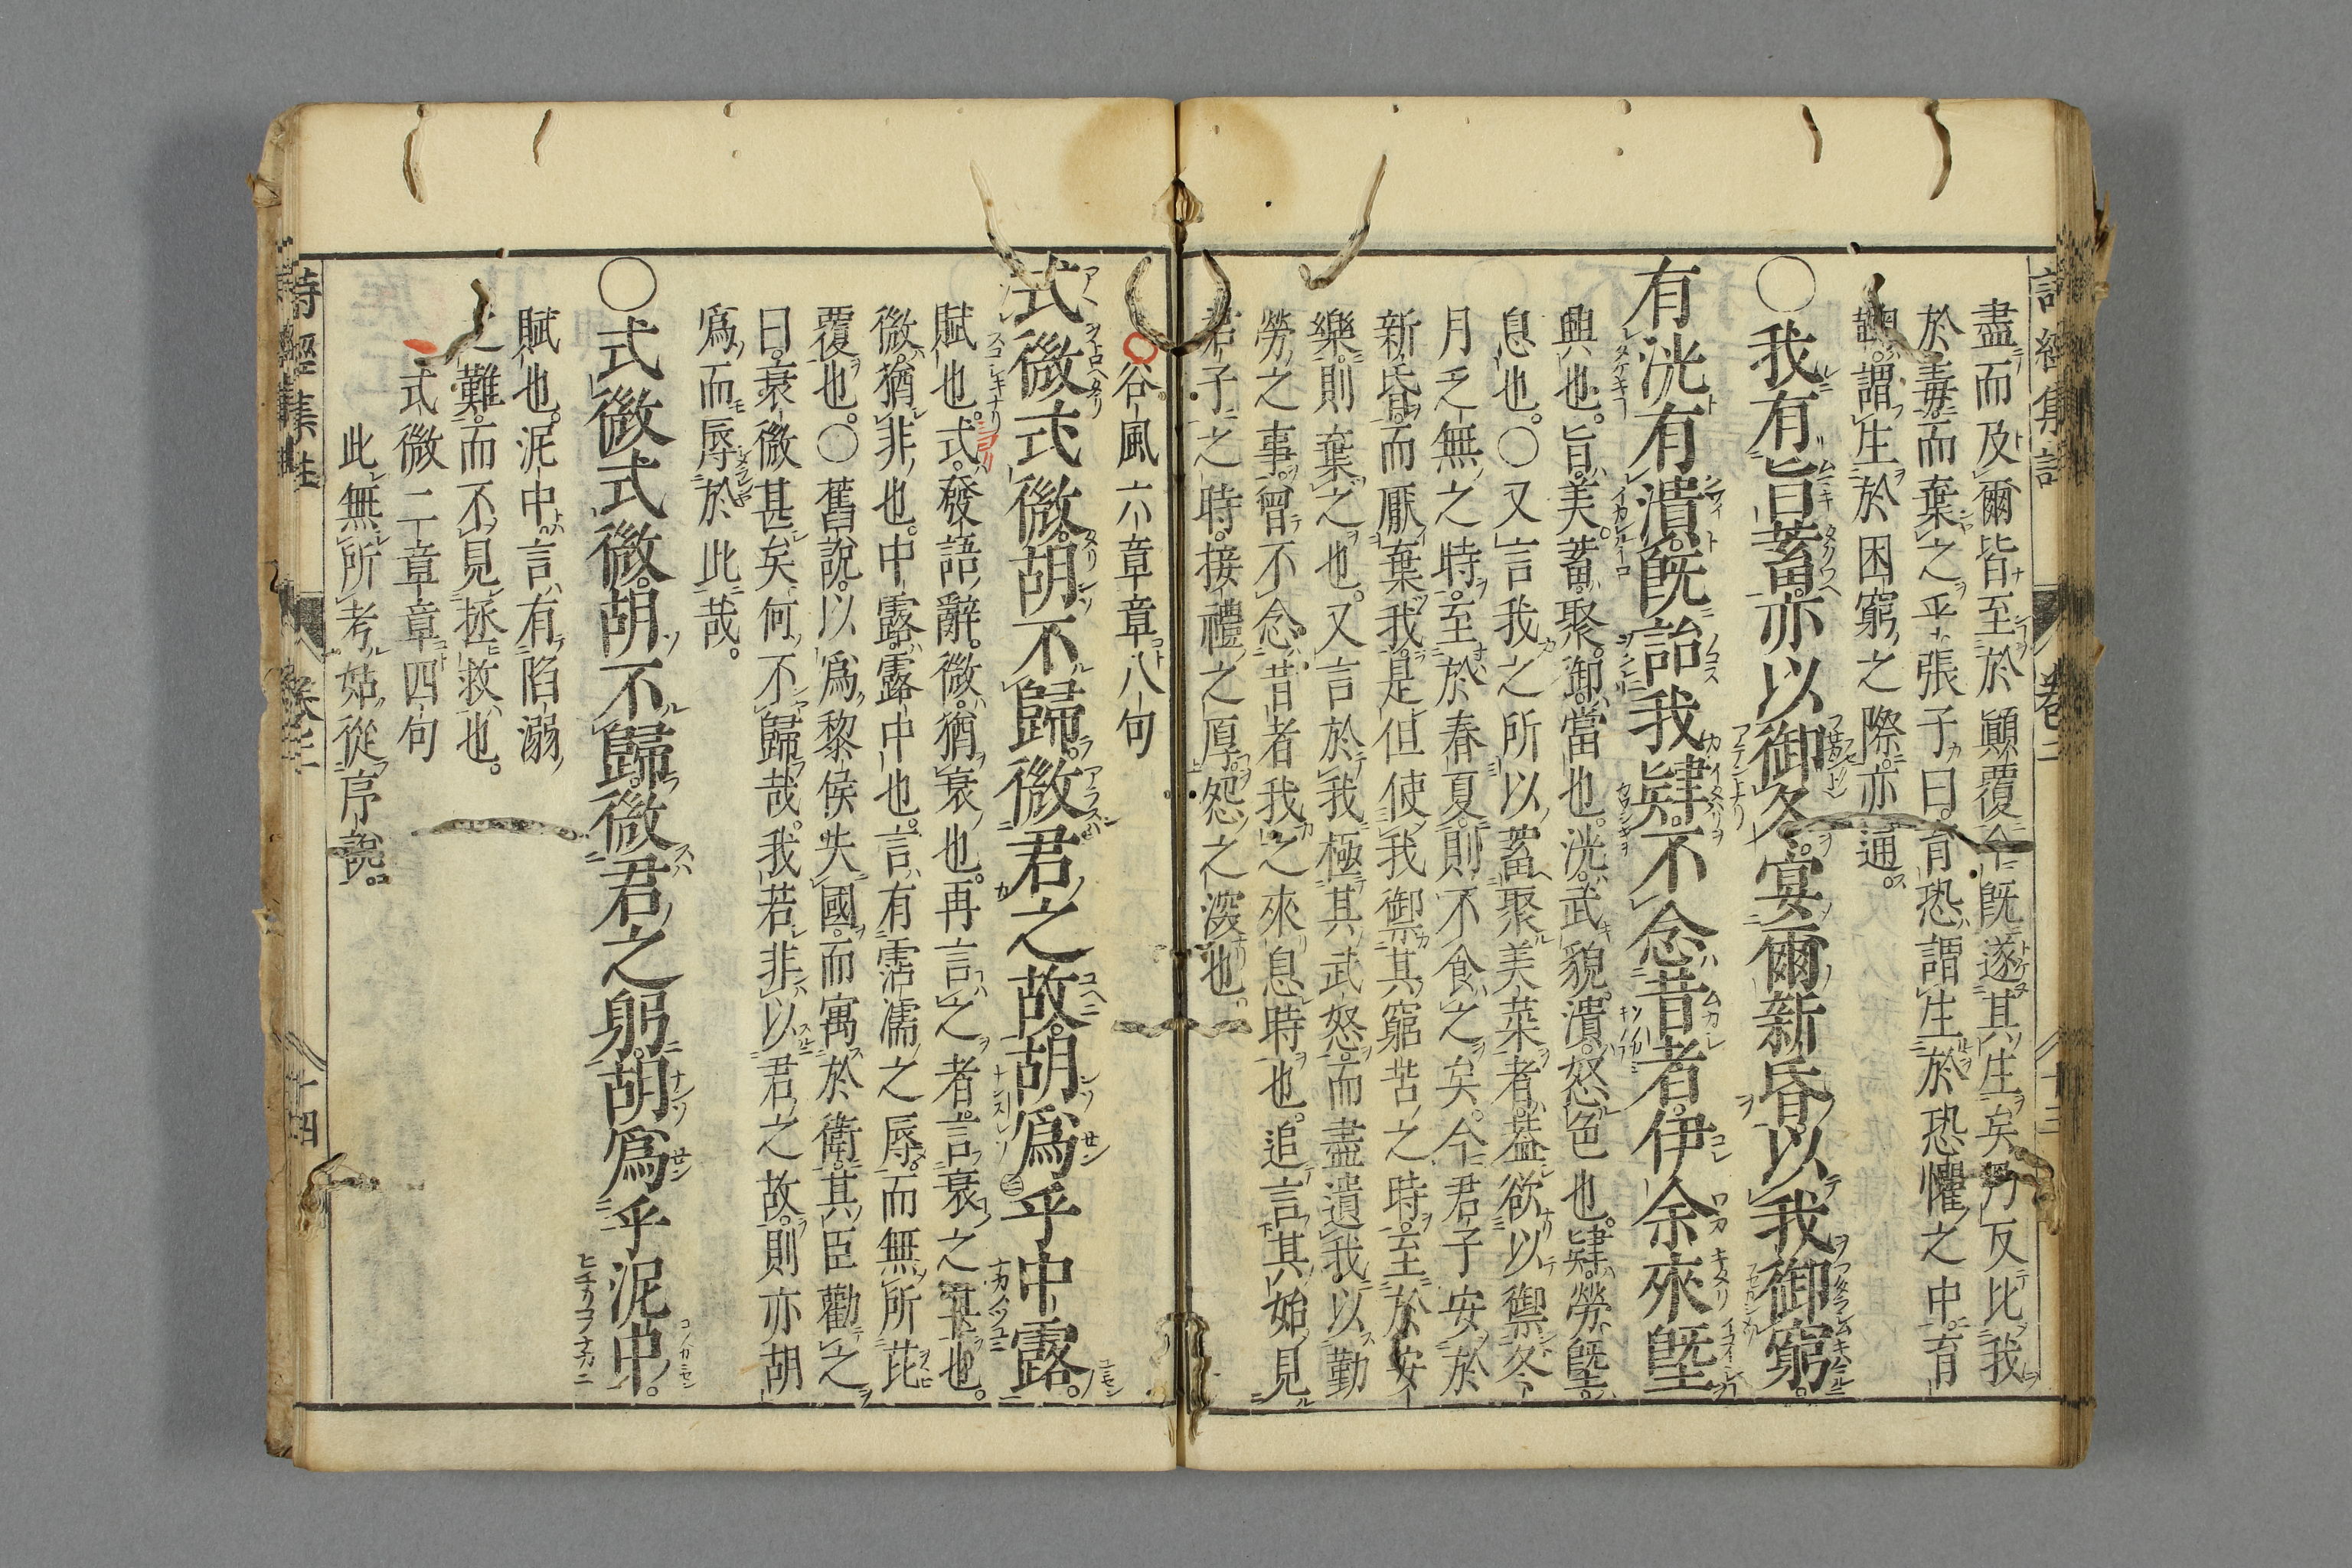 盡而及爾皆至於顚覆今既遂其生矣乃反比我
於毒而棄之乎張子曰育恐謂生於恐懼之中育
鞫謂生於困窮之際亦通。
○我有旨蓄。亦以御冬。宴爾新昏。以我御窮。
有洸有潰。既詒我肄。不念昔者。伊余來墍
興也。旨。美。蓄。聚。御。當也。洸。武貌。潰。怒色也。肄。勞。墍。
息也。○又言我之所以蓄聚美菜者。蓋欲以禦冬
月乏無之時。至於春夏。則不食之矣。今君子安於
新昏。而厭棄我。是但使我禦其窮苦之時。至於安
樂。則棄之也。又言於我極其武怒。而盡遺我。以勤
勞之事。曾不念昔者我之來息時也。追言其始見
君子之時。接禮之厚。怨之深也。
谷風六章章八句
式微式微。胡不歸。微君之故。胡爲乎中露。
賦也。式。發語辭。微。猶衰也。再言之者。言衰之甚也。
微。猶非也。中露。露中也。言有霑濡之辱。而無所芘
覆也。○舊說。以爲黎侯失國。而寓於衛。其臣勸之
曰。衰微甚矣。何不歸哉。我若非以君之故。則亦胡
爲而辱於此哉。
○式微式微。胡不歸。微君之躬。胡爲乎泥中。
賦也。泥中。言有陷溺
之難。而不見拯救也。
式微二章章四句
此無所考。姑從序說。
詩經集註 卷二 十三
詩經集註 卷二 十四